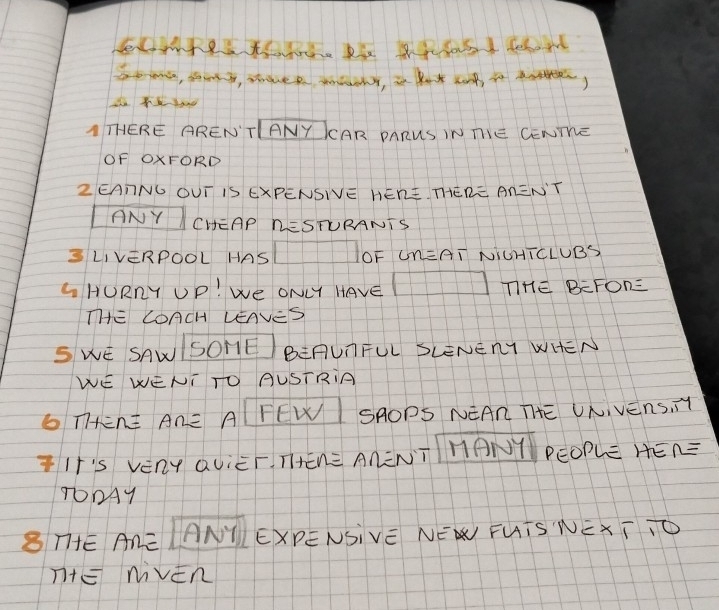 completare le frasi con
some, any, much, many, a lot of, a little,
a few
1 THERE AREN'T ANY CAR PARKS IN THE CENTRE
OF OXFORD
2 EATING OUT IS EXPENSIVE HERE. THERE AREN'T
ANY CHEAP RESTURANTS
3 LIVERPOOL HAS OF GREAT NIGHTCLUBS
4 HURRY UP! WE ONLY HAVE TIME BEFORE
THE COACH LEAVES
5 WE SAW SOME BEAUTIFUL SCENERY WHEN
WE WENT TO AUSTRIA
6 THERE ARE A FEW SHOPS NEAR THE UNIVERSITY
7 IT'S VERY QUIET. THERE AREN'T MANY PEOPLE HERE
TODAY
8 THE ARE ANY EXPENSIVE NEW FLATS NEXT TO
THE RIVER